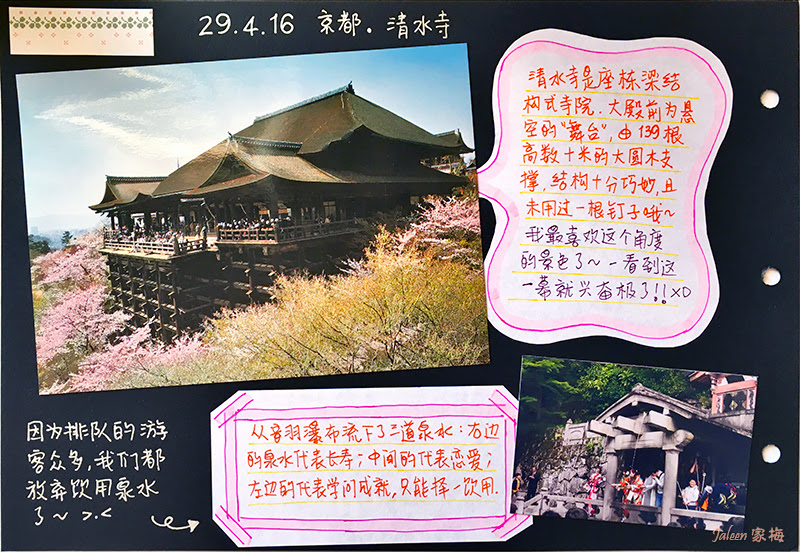 29.4.16 京都。清水寺
清水寺是座栋梁结
构式寺院. 大殿前为悬
空的"舞台", 由139根
高数十米的大圆木支
撑, 结构十分巧妙, 且
未用过一根钉子哦~
我最喜欢这个角度
的景色了~ 一看到这
一幕就兴奋极了!! XD
因为排队的游
客众多, 我们都
放弃饮用泉水
了~ >.<
从音羽瀑布流下了三道泉水: 右边
的泉水代表长寿; 中间的代表恋爱;
左边的代表学问成就, 只能择一饮用.
Jaleen 家梅